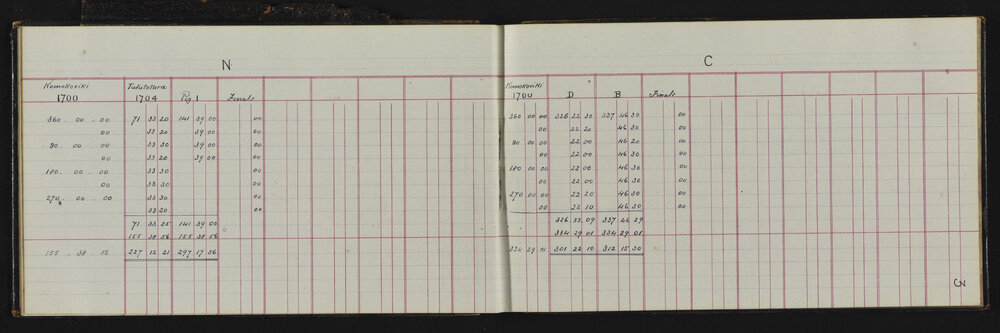 N
Komokoriki Tututotara
1700 1704 Peg 1 Finals
360 . 00 . 00 71 33 20 141 39 00 00
00 33 20 39 00 00
90 . 00 . 00 33 30 39 00 00
00 33 20 39 00 00
180 . 00 . 00 33 30 00
00 33 30 00
270 . 00 . 00 33 30 00
33 20 00
71 33 25 141 39 00
155 38 56 155 38 56
155 . 38 . 56 227 12 21 297 17 56
C
Komokoriki
1700 D B Finals
360 00 00 326 22 30 337 46 30 00
00 00 22 20 46 30 00
90 00 00 22 00 46 20 00
00 22 00 46 30 00
180 00 00 22 00 46 30 00
00 00 22 00 46 30 00
270 00 00 22 20 46 30 00
00 22 10 46 30 00
337 46 29
334 29 01 334 29 01
29 01 301 22 10 312 15 30
3